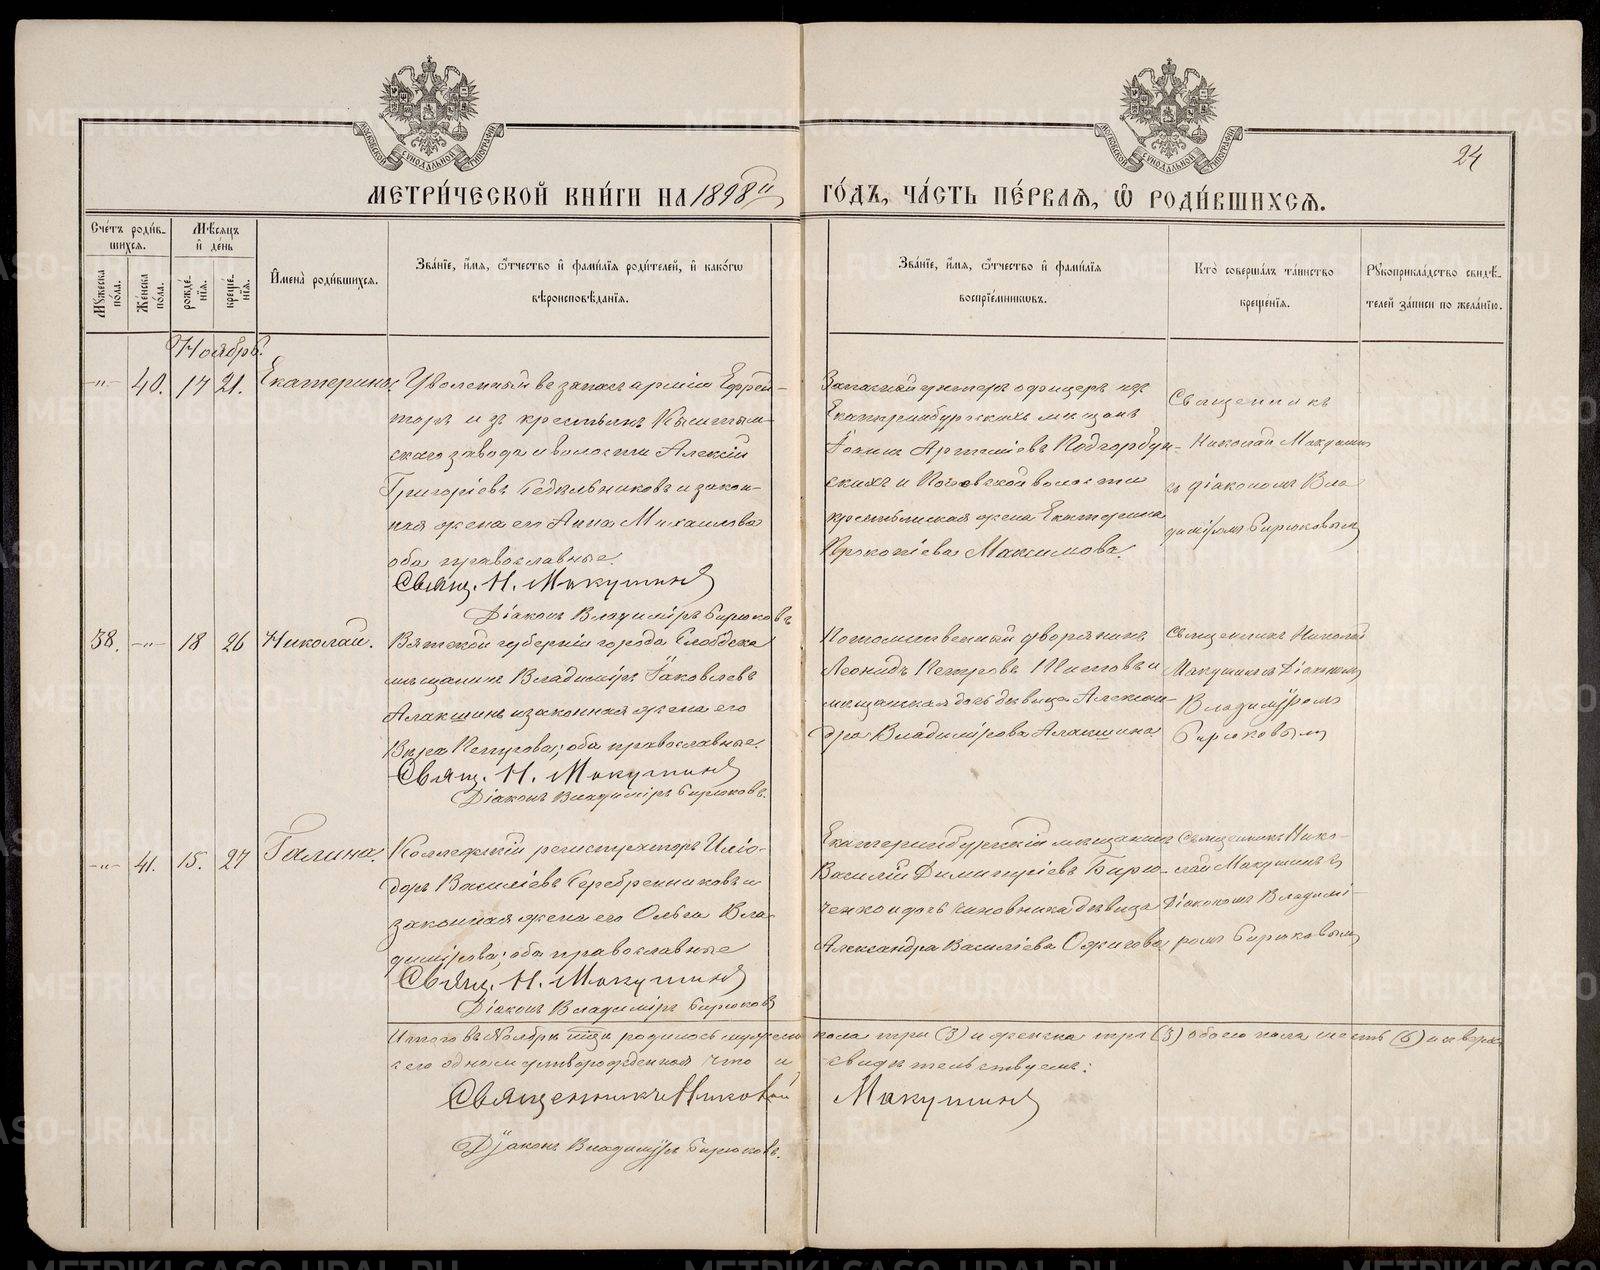 МОСКОВСКОЙ СѴНОДАЛЬНОЙ ТИПОГРАФІИ
МОСКОВСКОЙ СѴНОДАЛЬНОЙ ТИПОГРАФІИ
24
МЕТРИ́ЧЕСКОЙ КНИ́ГИ НА 1898й
ГО́ДЪ, ЧА́СТЬ ПЕ́РВАЯ, Ѡ҆ РОДИ́ВШИХСЯ.
Сче́тъ роди́в-
шихся.
Мѣ́сяцъ
и҆ де́нь
Мꙋ́жеска по́ла.
Же́нска по́ла.
рожде́-нїя.
креще́-нїя.
И҆мена̀ роди́вшихся.
Зва́нїе, и҆́мя, ѻ҆́тчество и҆ фами́лїя роди́телей, и҆ како́гѡ
вѣроисповѣ́данїя.
Зва́нїе, и҆́мя, ѻ҆́тчество и҆ фами́лїя
воспрїе́мникѡвъ.
Кто̀ соверша́лъ та́инство
креще́нїя.
Рꙋкоприкла́дство свидѣ́-
телей за́писи по жела́нїю.
Ноябрь.
-"- 40. 17 21. Екатерина
Уволенный въ запасъ арміи Ефрей-
торъ изъ крестьянъ Кыштым-
скаго завода и волости Алексій
Григоріевъ Седельниковъ и закон-
ная жена его Анна Михаилова
оба православные.
Свящ. Н. Макушинъ
Діаконъ Владиміръ Бирюковъ
Запасный унтеръ офицеръ изъ
Екатеринбургскихъ мещанъ
Іоаннъ Артеміевъ Подгорбун-
скихъ и волости
крестьянская жена Екатерина
Прокопіева Максимова.
Священникъ
Николай Макушинъ
съ діакономъ Вла
диміромъ Бирюковымъ
38. -"- 18 26 Николай.
Вятской губерніи города Слободска
мѣщанинъ Владиміръ Іаковлевъ
Алакшинъ и законная жена его
Вѣра Петрова; оба православные.
Свящ. Н. Макушинъ
Діаконъ Владиміръ Бирюковъ.
Потомственный дворянинъ
Леонидъ Петровъ и
мѣщанская дочь дѣвица Алексан-
дра Владимірова Алакшина
Священникъ Николай
Макушинъ съ Діакономъ
Владиміромъ
Бирюковымъ
-"- 41. 15. 27 Галина.
Коллежскій регистраторъ Иліо-
доръ Василіевъ Серебренниковъ и
законная жена его Ольга Вла-
димірова; оба православные
Свящ. Н. Макушинъ
Діаконъ Владиміръ Бирюковъ
Екатеринбургскій мѣщанинъ
Василій Димитріевъ Бирю-
ченко и дочь чиновника дѣвица
Александра Василіева Ожигова
Священникъ Нико-
лай Макушинъ съ
Діакономъ Владимі-
ромъ Бирюковымъ
Итого въ Ноябрѣ родилось мужеска пола три (3) и женска три (3) обоего пола шесть (6) и сверхъ
сего одинъ мертворожденный что и свидѣтельствуемъ:
Священникъ Николай Макушинъ
Діаконъ Владиміръ Бирюковъ.
METRIKI.GASO-URAL.RU